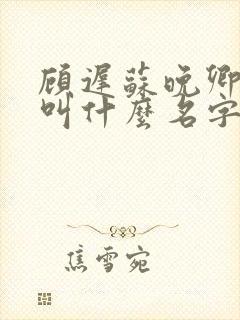 顾遲蘇晚卿
叫什麼名字
焦雪宛